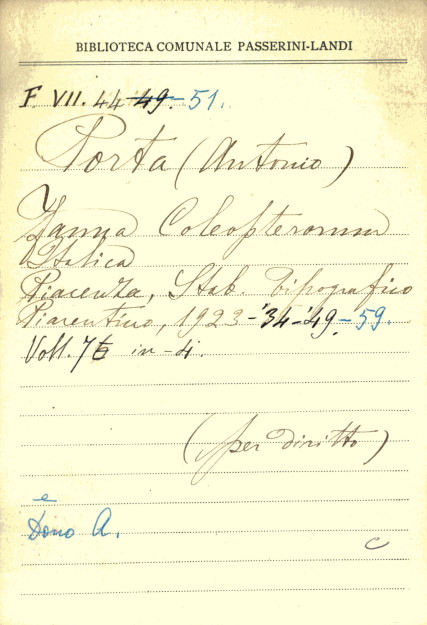 BIBLIOTECA COMUNALE PASSERINI-LANDI
F. VII. 44-49.-51.
Porta (Antonio)
Fauna Coleopterorum
Italica
Piacenza, Stab. Tipografico
Piacentino, 1923-'34-'49.-59.
Voll. 7 in-4.
(per diritto)
e
Dono A.
C